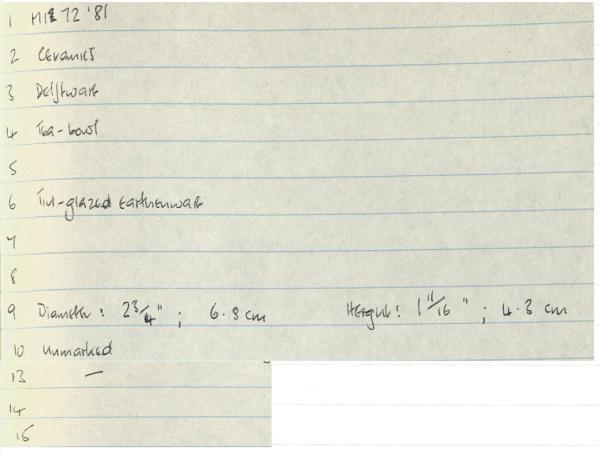 1 MIE 72 '81
2 Ceramics
3 Delftware
4 Tea-bowl
5
6 Tin-glazed earthenware
7
8
9 Diameter: 2 3/4"; 6.8 cm Height: 1 11/16"; 4.3 cm
10 Unmarked
13 —
14
15